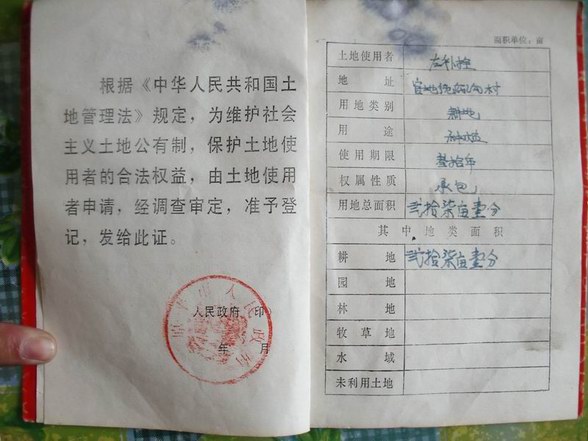 根据《中华人民共和国土
地管理法》规定，为维护社会
主义土地公有制，保护土地使
用者的合法权益，由土地使用
者申请，经调查审定，准予登
记，发给此证。
人民政府 印
年 月
面积单位：亩
土地使用者
地址
用地类别 耕地
用途
使用期限 叁拾年
权属性质 承包
用地总面积 弍拾柒亩壹分
其中地类面积
耕地 弍拾柒亩壹分
园地
林地
牧草地
水域
未利用土地